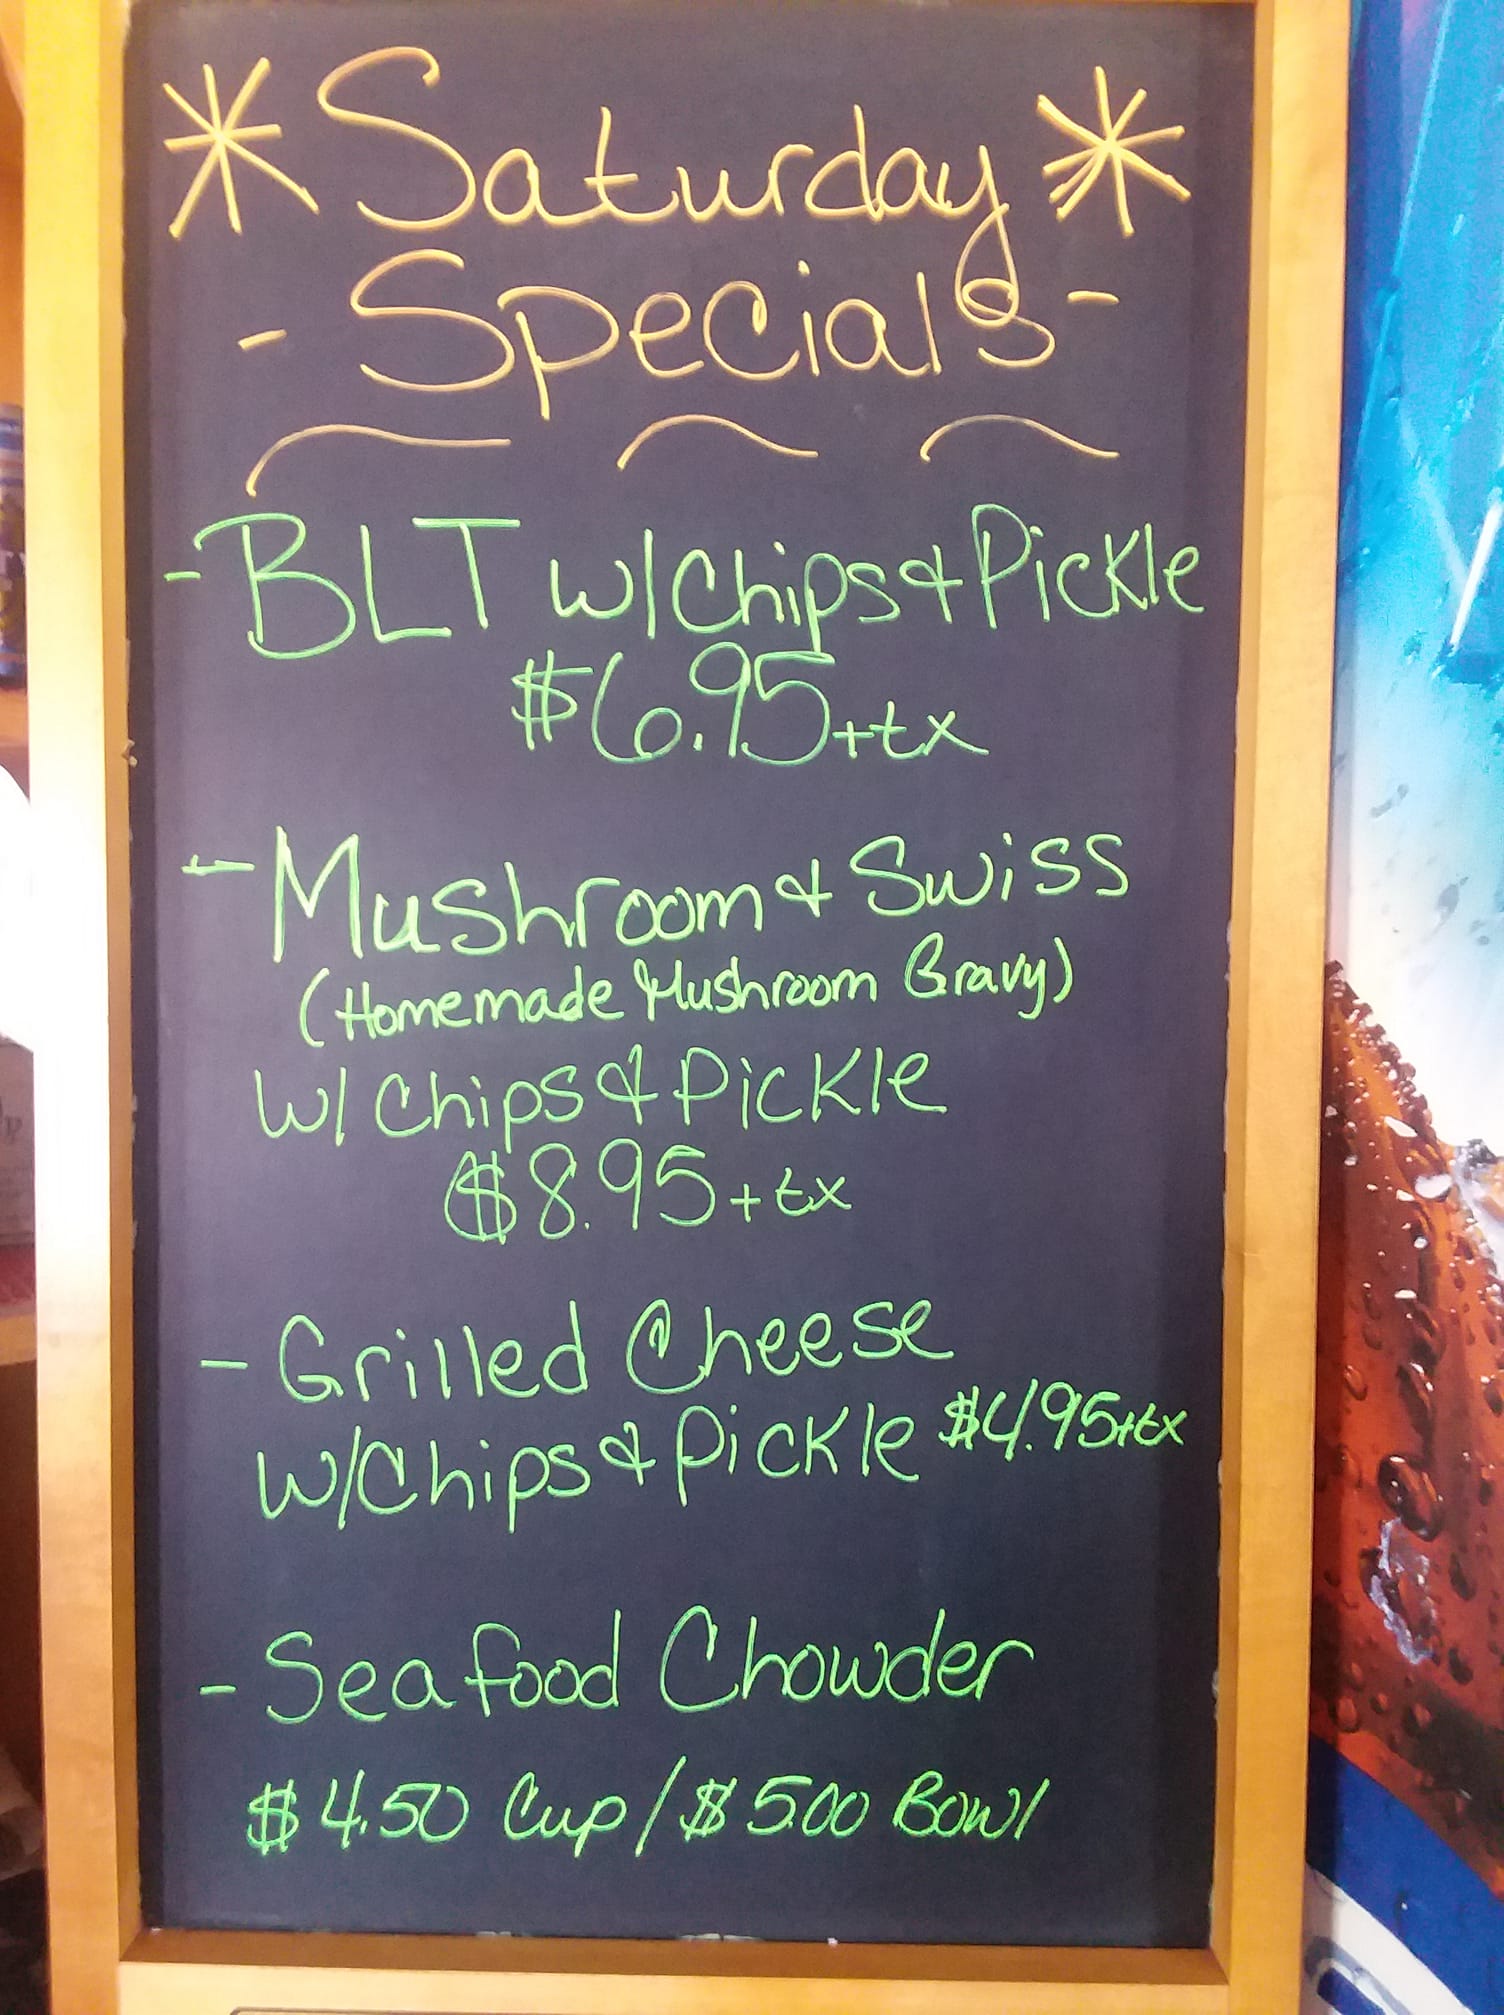 * Saturday *
- Specials -
- BLT w/ Chips & Pickle
$6.95 + tx
- Mushroom & Swiss
(Homemade Mushroom Gravy)
w/ Chips & Pickle
$8.95 + tx
- Grilled Cheese
w/ Chips & Pickle $4.95 + tx
- Seafood Chowder
$4.50 Cup / $5.00 Bowl